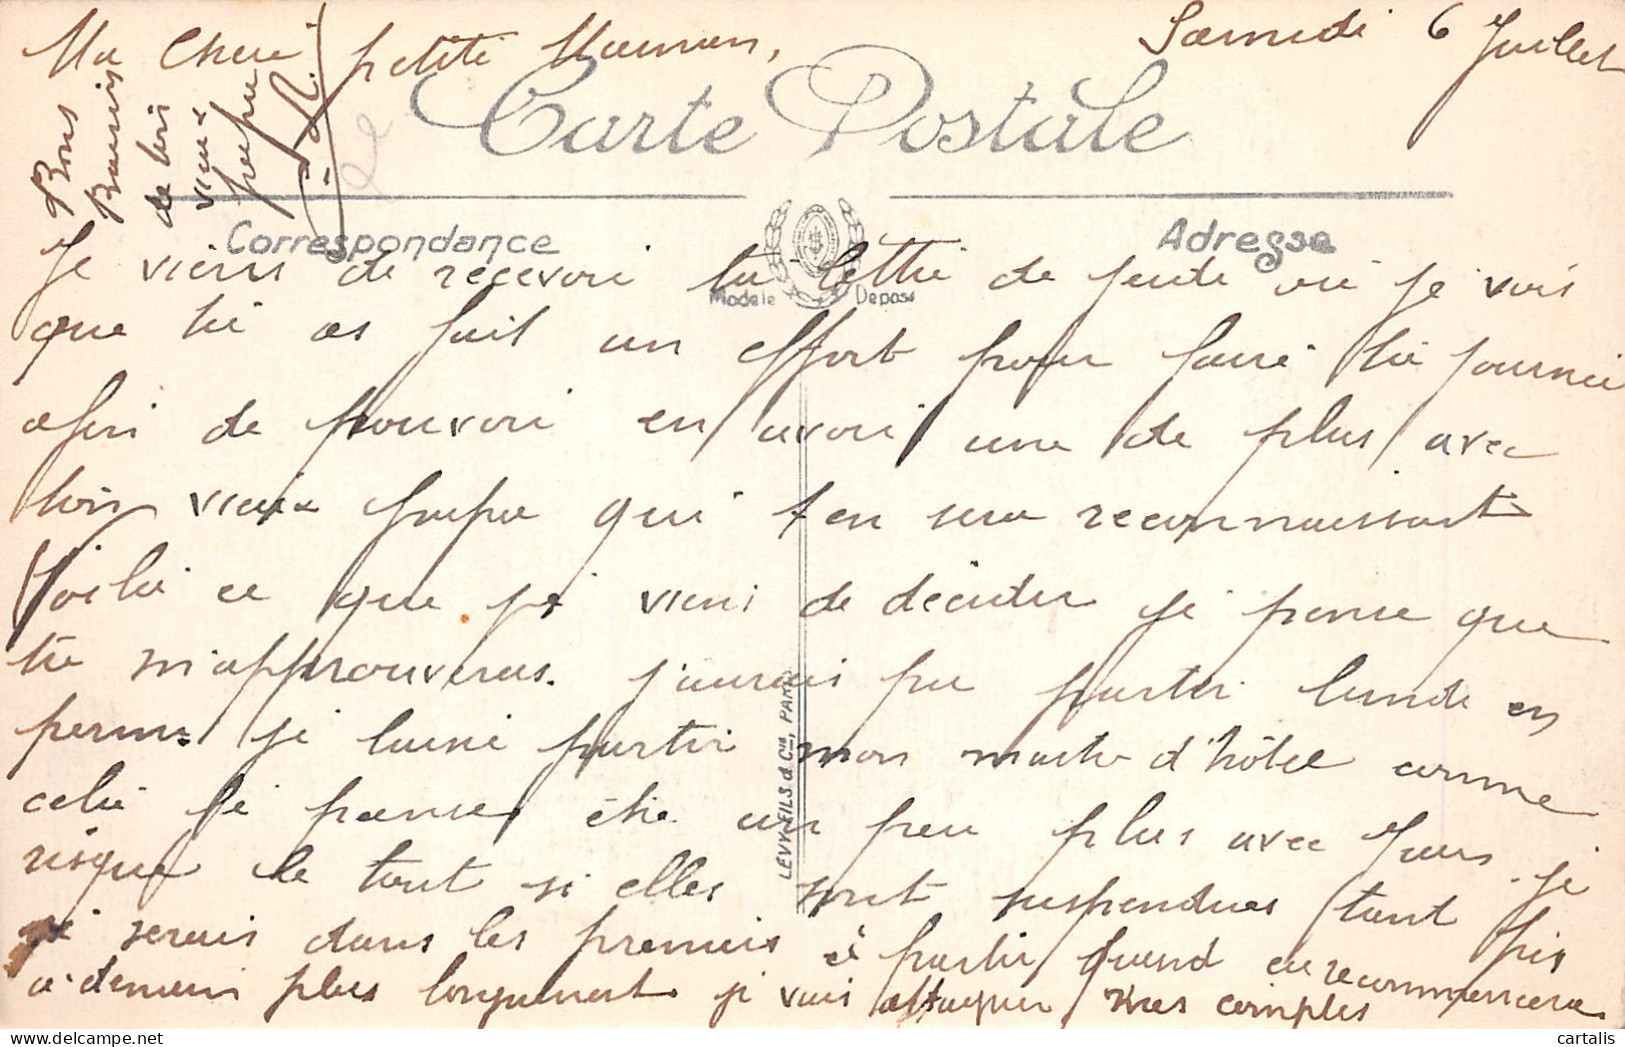 Samedi 6 Juillet
Ma Cherie petite Maman,
Carte Postale
Bons
Baisers
de ton
vieux
papa
Correspondance
Adresse
Modèle Déposé
Je viens de recevoir ta lettre de jeudi où je vois
que tu as fait un effort pour faire ta journée
afin de pouvoir en avoir une de plus avec
ton vieux papa qui t'en sera reconnaissant
Voilà ce que je viens de décider je pense que
tu m'approuveras. j'aurais pu partir lundi en
perm. je laisse partir mon maitre d'hôtel comme
cela je pense être un peu plus avec vous. je
risque le tout si elles sont suspendues tant pis
je serais dans les premiers à partir quand on recommencera
à demain plus longuement je vais attaquer mes comptes
LEVY FILS & Cie, PARIS
cartalis